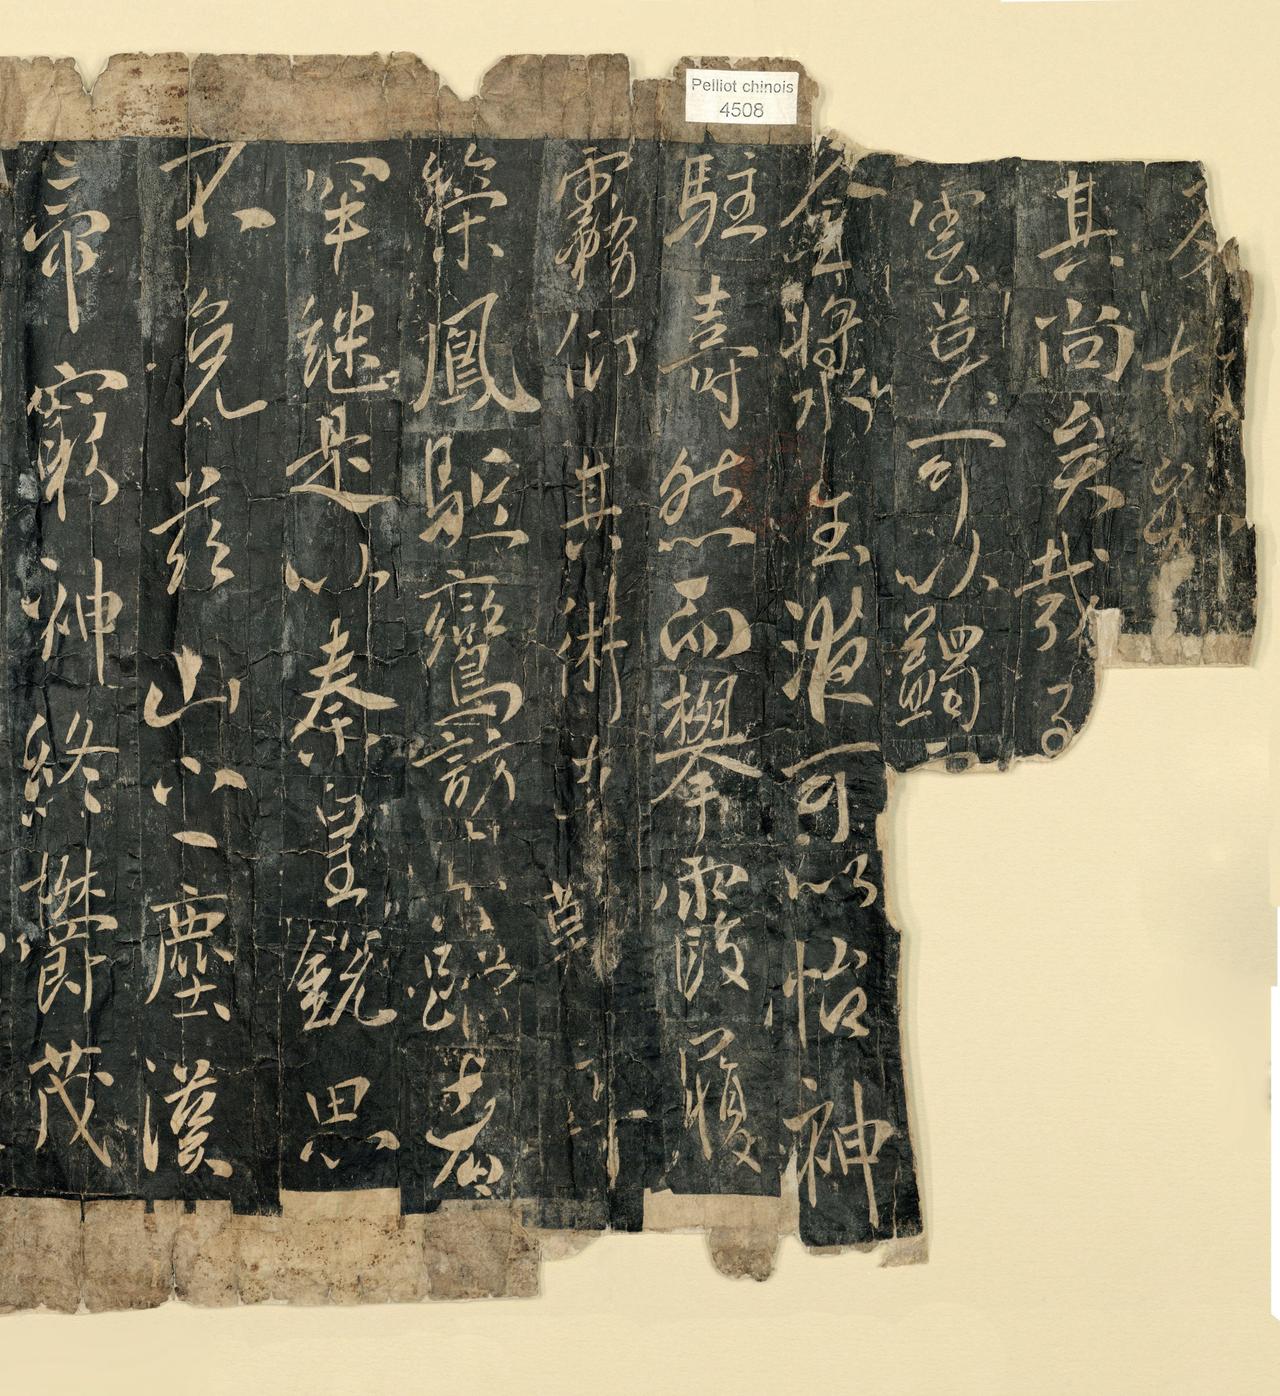 Pelliot chinois
4508
其尚矣哉
雲草可以蠲
金漿玉液可以怡神
駐壽然而攀霞履
霧衍其術莫
鳳駈鸞訪者
罕継是以秦皇銳思
不免兹山之塵漢
帝窮神終欝茂